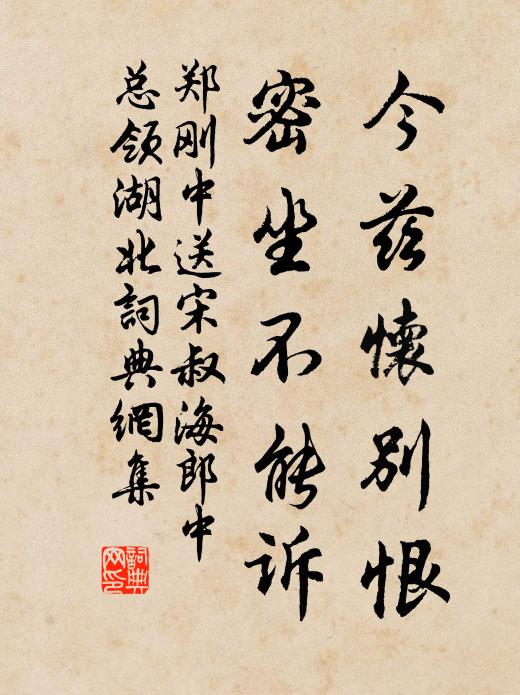 今茲懷别恨
密坐不能訴
郑刚中送宋叔海郎中
总领湖北詞典網集
詞典
网印